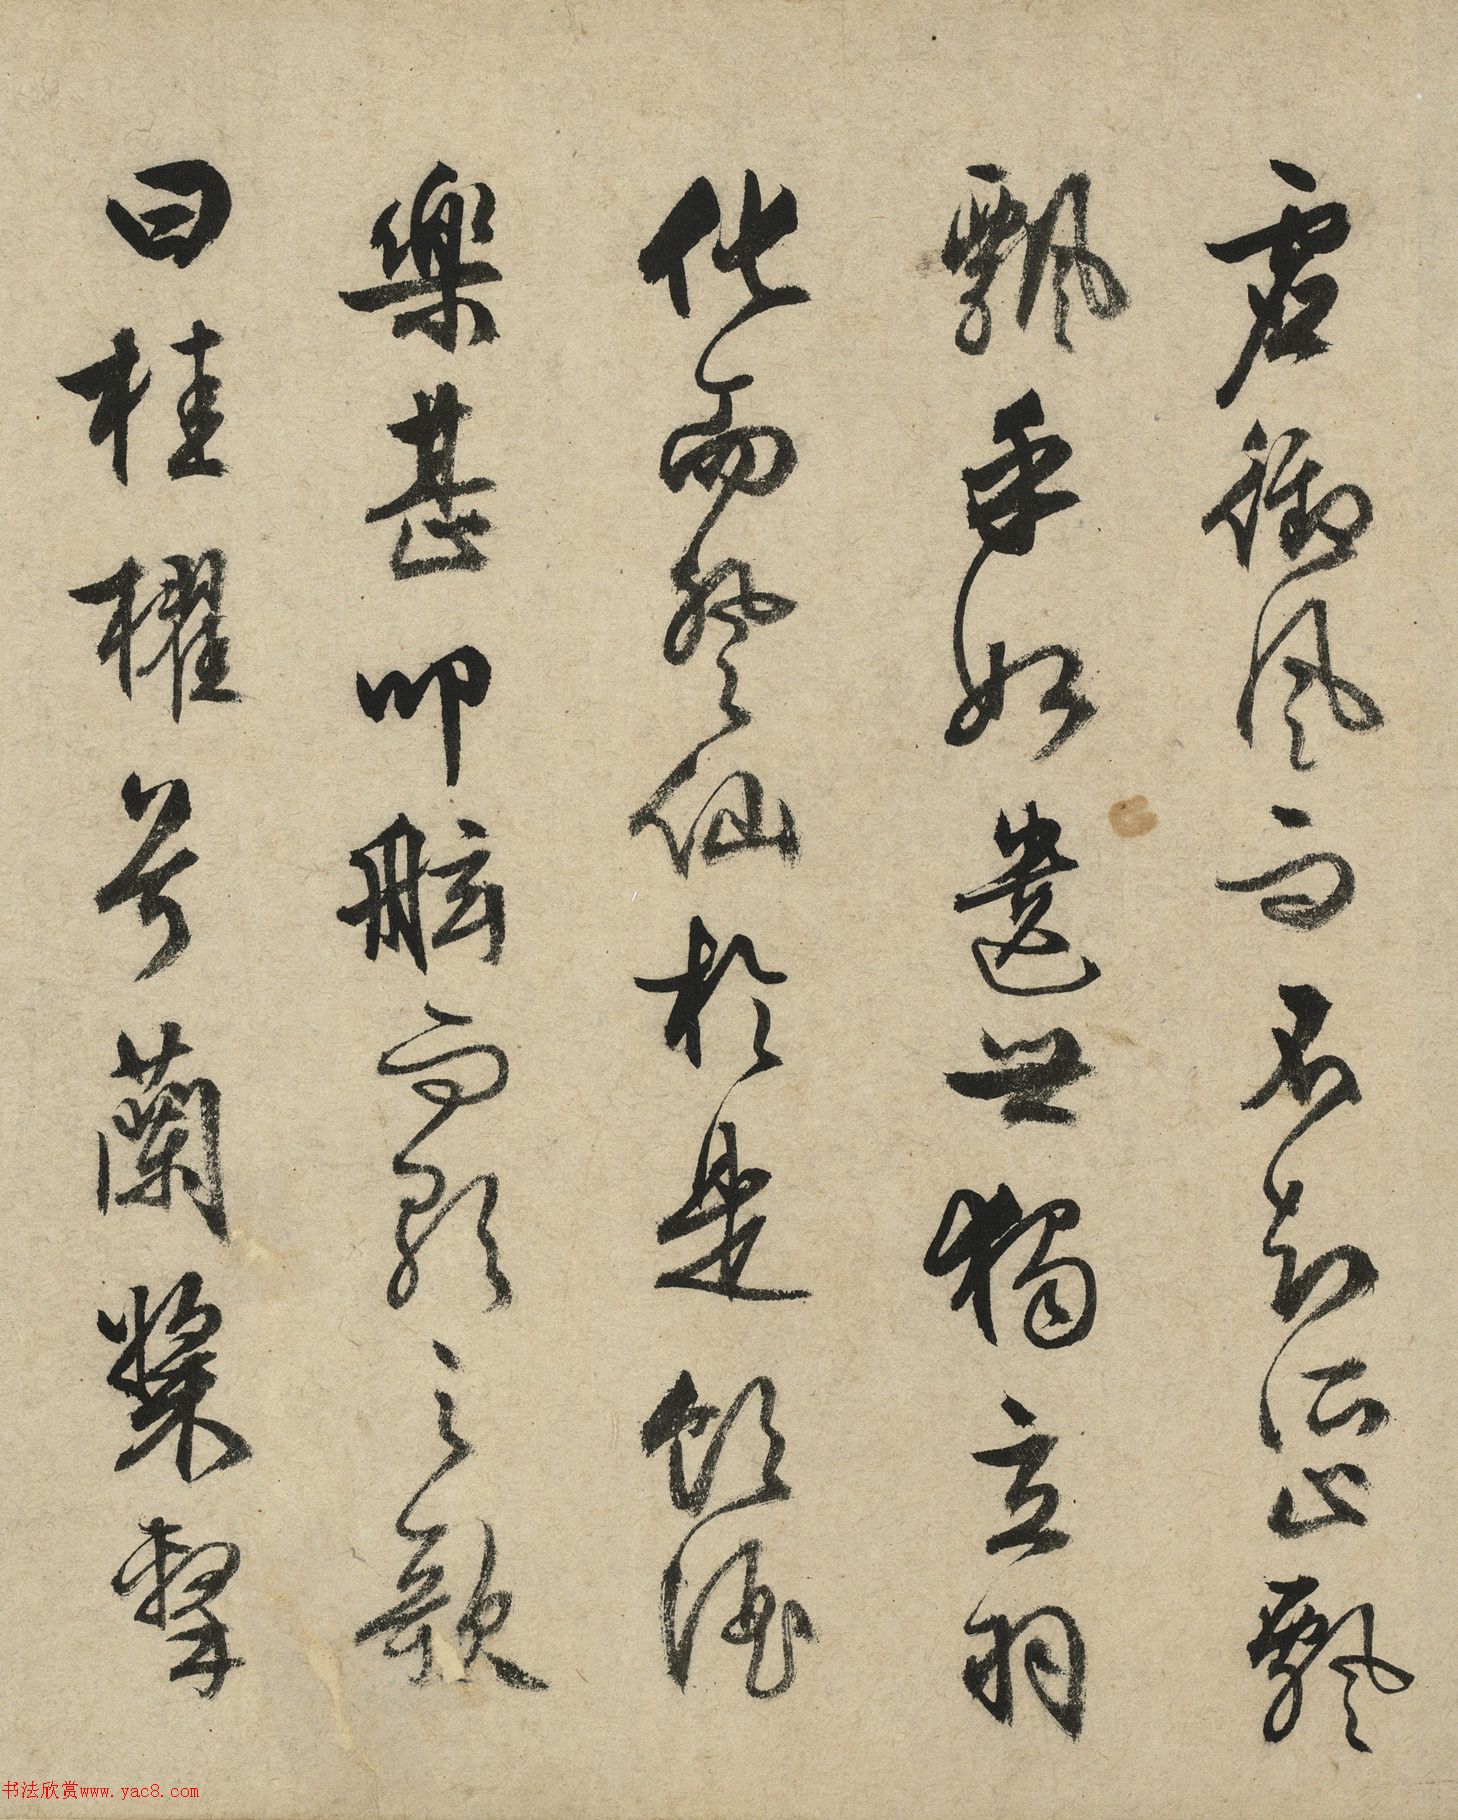 虛御風而不知所止飄
飄乎如遺世獨立羽
化而登仙於是飲酒
樂甚叩舷而歌之歌
曰桂櫂兮蘭槳擊
书法欣赏www.yac8.com